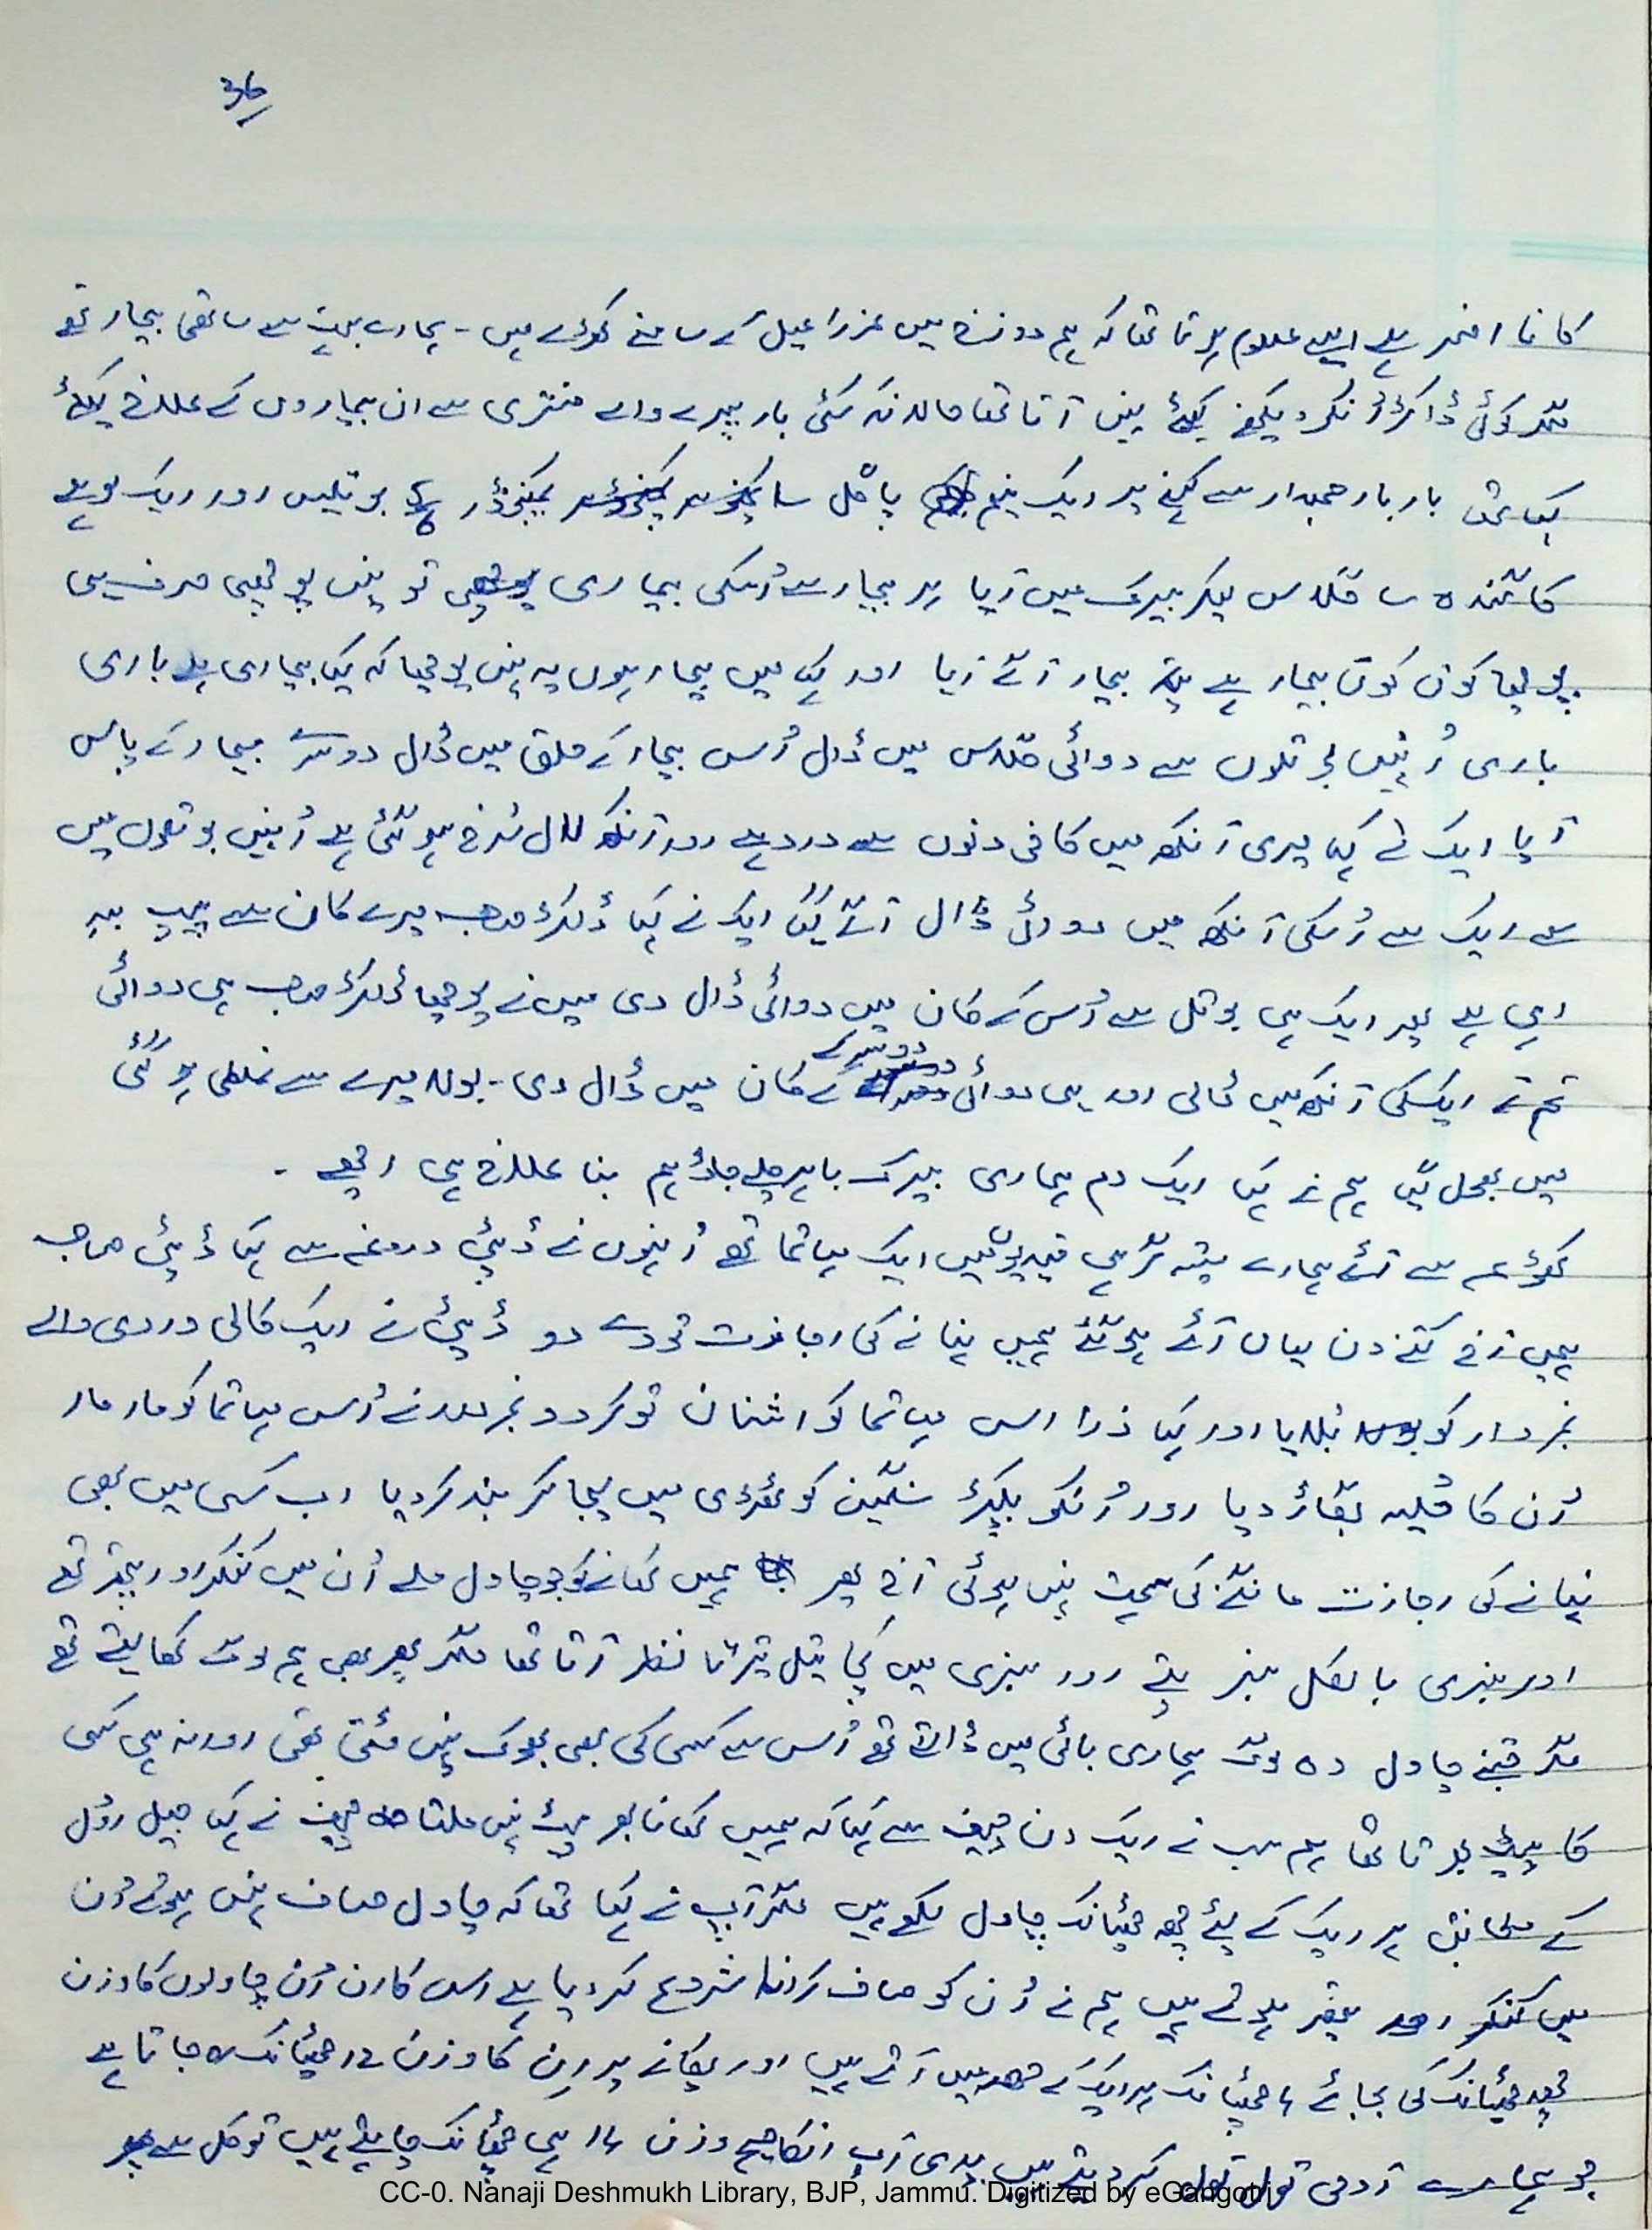 36
کانا افسر ہے ایسے معلوم ہوتا تھا کہ ہم دوزخ میں عزرائیل کے سامنے کھڑے ہیں - ہمارے بہت سے ساتھی بیمار تھے
مگر کوئی ڈاکٹر اُنکو دیکھنے کیلئے نہیں آتا تھا حالانکہ کئی بار پہرے والے سنتری سے ان بیماروں کے علاج کیلئے
کہا تھا بار بار جمعدار سے کہنے پر ایک نیم پاگل سا کمپونڈر بوتلیں اور ایک لوہے
کا گندہ سا گلاس لیکر بیرک میں آیا ہر بیمار سے اُسکی بیماری تو نہیں پوچھی صرف یہی
پوچھا کون کون بیمار ہے بیمار آگے آیا اور کہا میں بیمار ہوں یہ نہیں پوچھا کہ کیا بیماری ہے باری
باری اُنہیں بوتلوں سے دوائی گلاس میں ڈال اُس بیمار کے حلق میں ڈال دوسرے بیمار کے پاس
آیا ایک نے کہا میری آنکھ میں کافی دنوں سے درد ہے اور آنکھ لال سُرخ ہو گئی ہے اُنہیں بوتلوں میں
سے ایک سے اُسکی آنکھ میں دوائی ڈال آگے گیا ایک نے کہا ڈاکٹر صاحب میرے کان سے پیپ بہہ
رہی ہے پھر ایک ہی بوتل سے اُس کے کان میں دوائی ڈال دی میں نے پوچھا ڈاکٹر صاحب یہی دوائی
تم نے ایک کی آنکھ میں ڈالی اور یہی دوائی دوسرے کے کان میں ڈال دی - بولا میرے سے غلطی ہو گئی
میں بھول گیا ہم نے کہا ایک دم ہماری بیرک باہر چلے جاؤ ہم بنا علاج ہی اچھے -
سے آئے ہمارے ستیہ گرہی قیدیوں میں ایک مہاتما تھے اُنہوں نے ڈپٹی دروغہ سے کہا ڈپٹی صاحب
ہمیں آج کتنے دن یہاں آئے ہو گئے ہمیں نہانے کی اجازت تو دے دو ڈپٹی نے ایک کالی وردی والے
نمبردار کو بُلایا اور کہا ذرا اس مہاتما کو اشنان تو کرا دو نمبردار نے اُس مہاتما کو مار مار
اُن کا حُلیہ بگاڑ دیا اور اُنکو پکڑ سنگین کوٹھڑی میں لیجا کر بند کر دیا اب کسی میں بھی
نہانے کی اجازت مانگنے کی ہمت نہیں ہوئی آج پھر ہمیں کھانے کو جو چاول ملے اُن میں کنکر اور پتھر تھے
اور سبزی بالکل سبز پتے اور سبزی میں کچا تیل تیرتا نظر آتا تھا مگر پھر بھی ہم لوگ کھا لیتے تھے
مگر جتنے چاول وہ لوگ ہماری باٹی میں ڈالتے تھے اُس سے کسی کی بھی بھوک نہیں مٹتی تھی اور نہ ہی کسی
کا پیٹ بھرتا تھا ہم سب نے ایک دن چیف سے کہا کہ ہمیں کھانا بھر پیٹ نہیں ملتا چیف نے کہا جیل رُول
کے مطابق ہر ایک کے لئے چھ چھٹانک چاول لکھے ہیں مگر آپ نے کہا تھا کہ چاول صاف نہیں ہوتے اُن
میں کنکر اور پتھر ہوتے ہیں ہم نے اُن کو صاف کرانا شروع کر دیا ہے اس کارن اُن چاولوں کا وزن
چھ چھٹانک کی بجائے ۴ چھٹانک ہر ایک کے حصہ میں آتے ہیں اور پکانے پر ان کا وزن ۱۲ چھٹانک رہ جاتا ہے
جو ہمارے آدمی تول تول کر دیتے ہیں یدی آپ انکا صحیح وزن ۱۴ ہی چھٹانک چاہتے ہیں تو کل سے پھر
CC-0. Nanaji Deshmukh Library, BJP, Jammu. Digitized by eGangotri